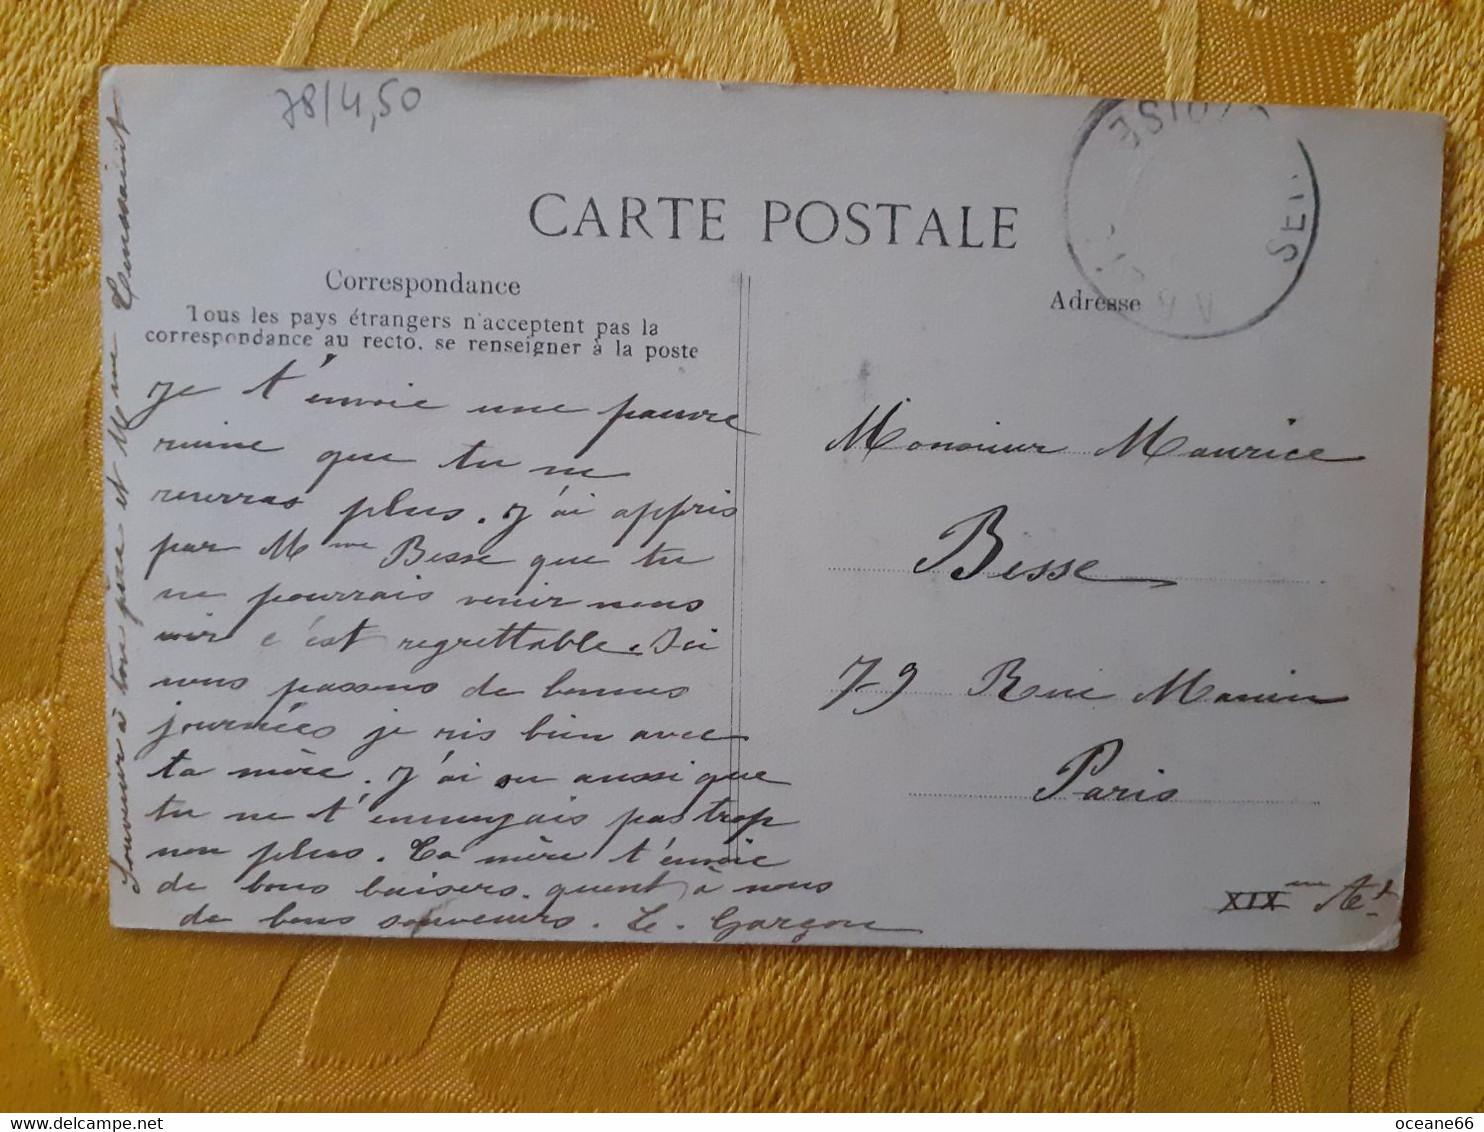 78/4,50
CARTE POSTALE
Correspondance
Tous les pays étrangers n'acceptent pas la
correspondance au recto, se renseigner à la poste
Je t'envoie une pauvre
ruine que tu ne
reverras plus. J'ai appris
par Mme Besse que tu
ne pourrais venir nous
voir c'est regrettable. Ici
nous passons de bonnes
journées je ris bien avec
ta mère. J'ai su aussi que
tu ne t'ennuyais pas trop
non plus. Ta mère t'envoie
de bons baisers. quent à nous
de bons souvenirs. E. Garçon
Souvenir à ton père et Mme Toussaint
OISE
SEI
Adresse
Monsieur Maurice
Besse
79 Rue Manin
Paris
XIXme Art
oceane66